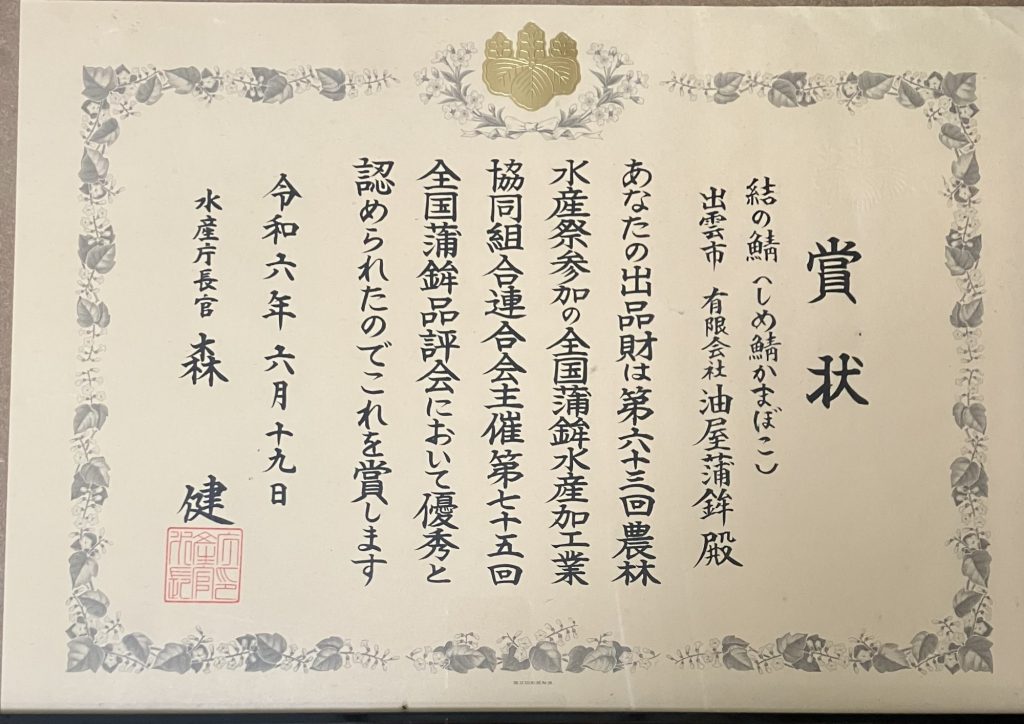 賞状
結の鯖（しめ鯖かまぼこ）
出雲市 有限会社 油屋蒲鉾 殿
あなたの出品財は第六十三回農林
水産祭参加の全国蒲鉾水産加工業
協同組合連合会主催第七十五回
全国蒲鉾品評会において優秀と
認められたのでこれを賞します
令和六年六月十九日
水産庁長官 森 健